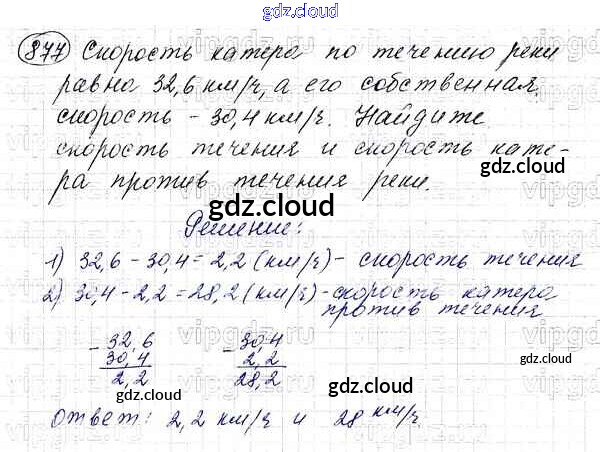 gdz.cloud
877 Скорость катера по течению реки
равна 32,6 км/ч, а его собственная
скорость - 30,4 км/ч. Найдите
скорость течения и скорость кате-
ра против течения реки.
gdz.cloud
gdz.cloud
Решение:
1) 32,6 - 30,4 = 2,2 (км/ч) - скорость течения
2) 30,4 - 2,2 = 28,2 (км/ч) - скорость катера
против течения
- 32,6 - 30,4
30,4 2,2
2,2 28,2
gdz.cloud
gdz.cloud
gdz.cloud
ответ: 2,2 км/ч и 28 км/ч.
gdz.cloud